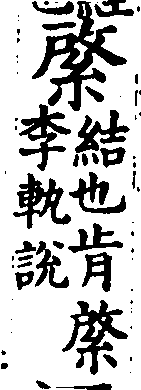 綮
結也肯綮
李軌說